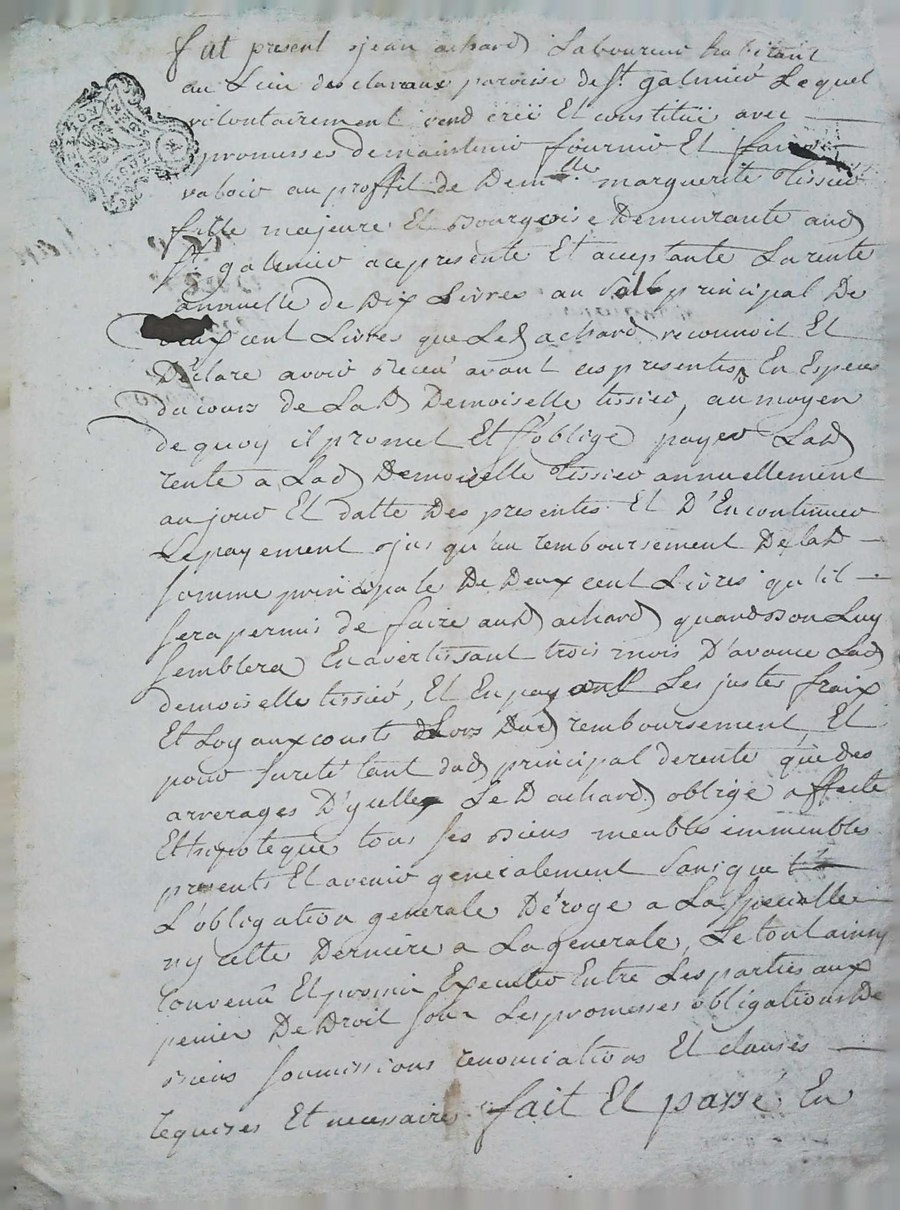 fut present jean achard Laboureur habitant
au Lieu des clavaux paroisse de St. galmier Lequel
volontairement vend créé Et constitué avec
promesses de maintenir fournir Et faire
valoir au proffit de Demlle. marguerite tissier
fille majeure Et Bourgeoise Demeurante aud
St. galmier acepresente Et aceptante La rente
annuelle de Dix Livres au principal De
Deux cent Livres que Led achard reconnoit Et
Déclare avoir Receu avant ces presentes En Especes
du cours de Lad Demoiselle tissier, au moyen
de quoy il promet Et s'oblige payer Lad
rente a Lad Demoiselle tissier annuellement
au jour Et datte Des presentes Et D'En continuer
Le payement jusqu'au remboursement De lad
somme principale De Deux cent Livres qu'il
sera permis de faire aud achard quand bon Luy
semblera En avertissant trois mois D'avance Lad
demoiselle tissier, Et En payant Les justes fraix
Et Loyaux couts Lors Dud remboursement, Et
pour sureté tant dud principal de rente que des
arrerages D'ycelle Le D achard oblige affecte
Et hipoteque tous ses Biens meubles immeubles
presents Et avenir generalement sans que
L'obligation generale Déroge a La specialle
ny cette Derniere a La generale, Le tout ainsy
convenû Et promis Executer Entre Les parties aux
peines De Droit sous Les promesses obligations De
Biens soumissions renonciations Et clauses
requises Et necessaires fait Et passé En